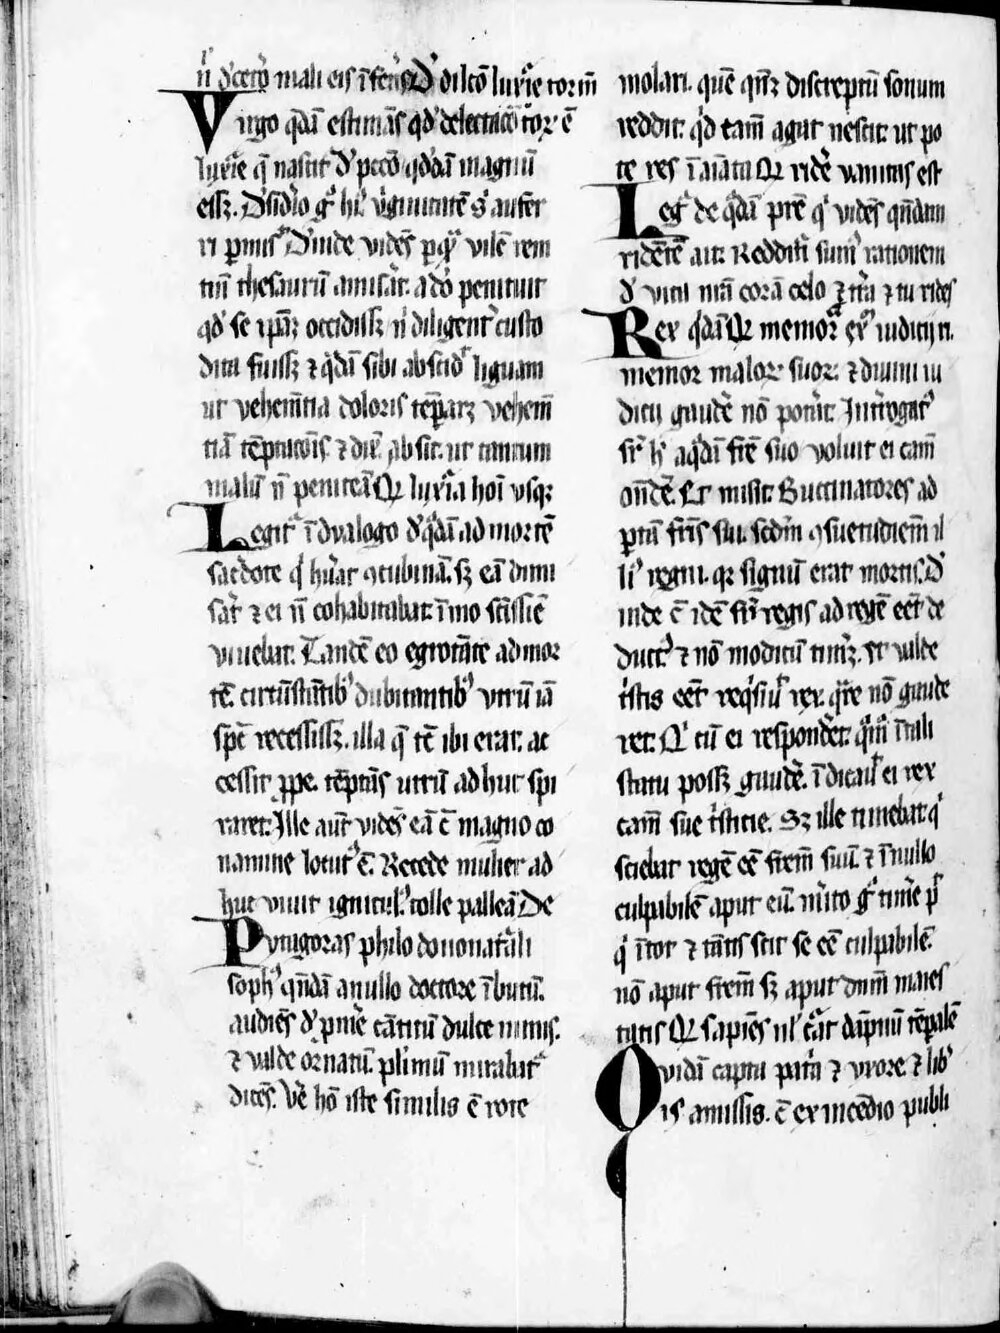 n̄ d'cet̾o mali eis īferēd' Q' dilcō luxͥie torm̄
Virgo qdā estimās qd' delectacō tor' ē
luxͥie q̄ nascit' d' pctō qd'dā magnū
essꝫ. D'sid'io gͦ hͥ v'ginitatē s' aufer
ri ꝑmisͥ. D'inde vidēs ꝑ qͣ vilē rem
tm̄ thesaurū amisͣat. adō penituit
qd' se ipāꝫ occidissꝫ n̄ diligent' custo
dita fuissꝫ ⁊ qdā sibi abscid' liguam
ut vehem̄tia doloris tēꝑarꝫ vehem̄
tiā tēptacōis. ⁊ dix̄. absit. ut tantum
malū n̄ peniteā Qr luxͥia hoī usqꝫ
Legit' ī dyalogo d' qͣdā ad mortē
sacd'ote qͥ huͣat ꝯcubinā. sꝫ eā dimi
sͣat ⁊ ei n̄ cohabitabat. īmo sc̄issīe
vivebat. Tandē eo egrotāte ad mor
tē. circūstātibꝰ dubitantibꝰ utrū iā
spc̄ recessissꝫ. illa q̄ tē ibi erat. ac
cessit ꝓpe. tēptās utrū adhuc spi
raret. Ille aut̄ vidēs eā c̄ magno co
namine locutꝰ ē. Recede mulier ad
huc vivit ignicul'. tolle palleā De
Pytagoras philo dono nat'ali
sophꝰ qn̄dā a nullo doctore ībutū.
audiēs d' ꝑnīe cātitū dulce nimis.
⁊ valde ornatū. pl'imū mirabat'
dicēs. Ve hō iste similis ē rote
molari. quē q̄rꝫ discreptū sonum
reddit. qd tam̄ agat nescit. ut po
te res ī aīata Qr ridē vanitas est
Leg' de qdā prē qͥ vidēs qn̄dam
ridētē ait. Reddit'i sumꝰ rationem
d' vita nr̄a corā celo ⁊ t'ra ⁊ tu rides
Rex qdā Qr memorͣ exͭ iudicij ti.
memor malor' suor'. ⁊ divini iu
dicii gaudē nō pot'at. Int'rogatꝰ
sr̄ hͦ a qdā frē suo voluit ei cam̄
ōndē. Et misit. Buccinatores ad
portā fris sui. scdm̄ ꝯsuetudiem il
liꝰ regni. qr signū erat mortis. D'
inde c̄ idē fr̄ regis ad regē eēt de
ductꝰ ⁊ nō modicū tim̄ꝫ. ⁊ valde
t'stis eēt reqͥsiuͥ rex. qͣre nō gaude
ret. Qͥ cū ei respondēt. qͦmͦ ī tali
statu possꝫ gaudē. īdicauͥ ei rex
cam̄ sue t'sticie. Sꝫ ille timebat. qͥ
sciebat regē eē frem̄ suū. ⁊ ī nullo
culpabilē aput eū. m̄ito gͦ timē pͭ
qͥ ītor ⁊ tātis scit se eē culpabilē.
nō aput frem̄ sꝫ aput dnm̄ maies
tatis Qr sapiēs vlͭ cͣar dāpnū tēpalē
Quidā capta pat'a ⁊ uxore. ⁊ libͥ
is amissis. c̄ ex incēdio publi